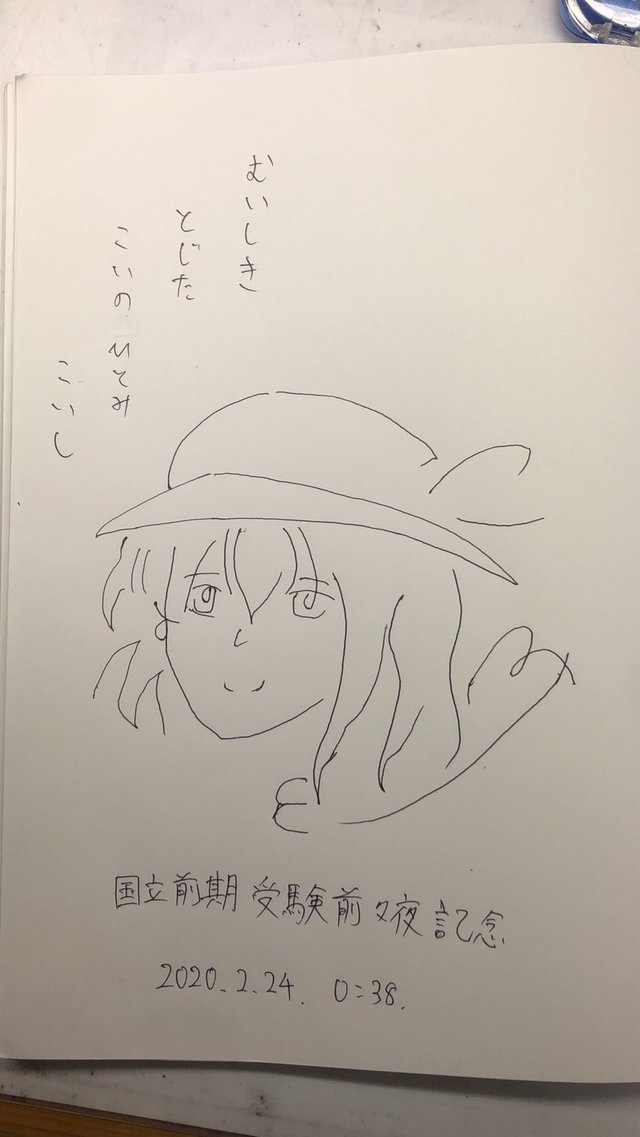 むいしき
とじた
こいのひとみ
こいし
国立前期 受験前夕夜記念
2020.2.24. 0:38.